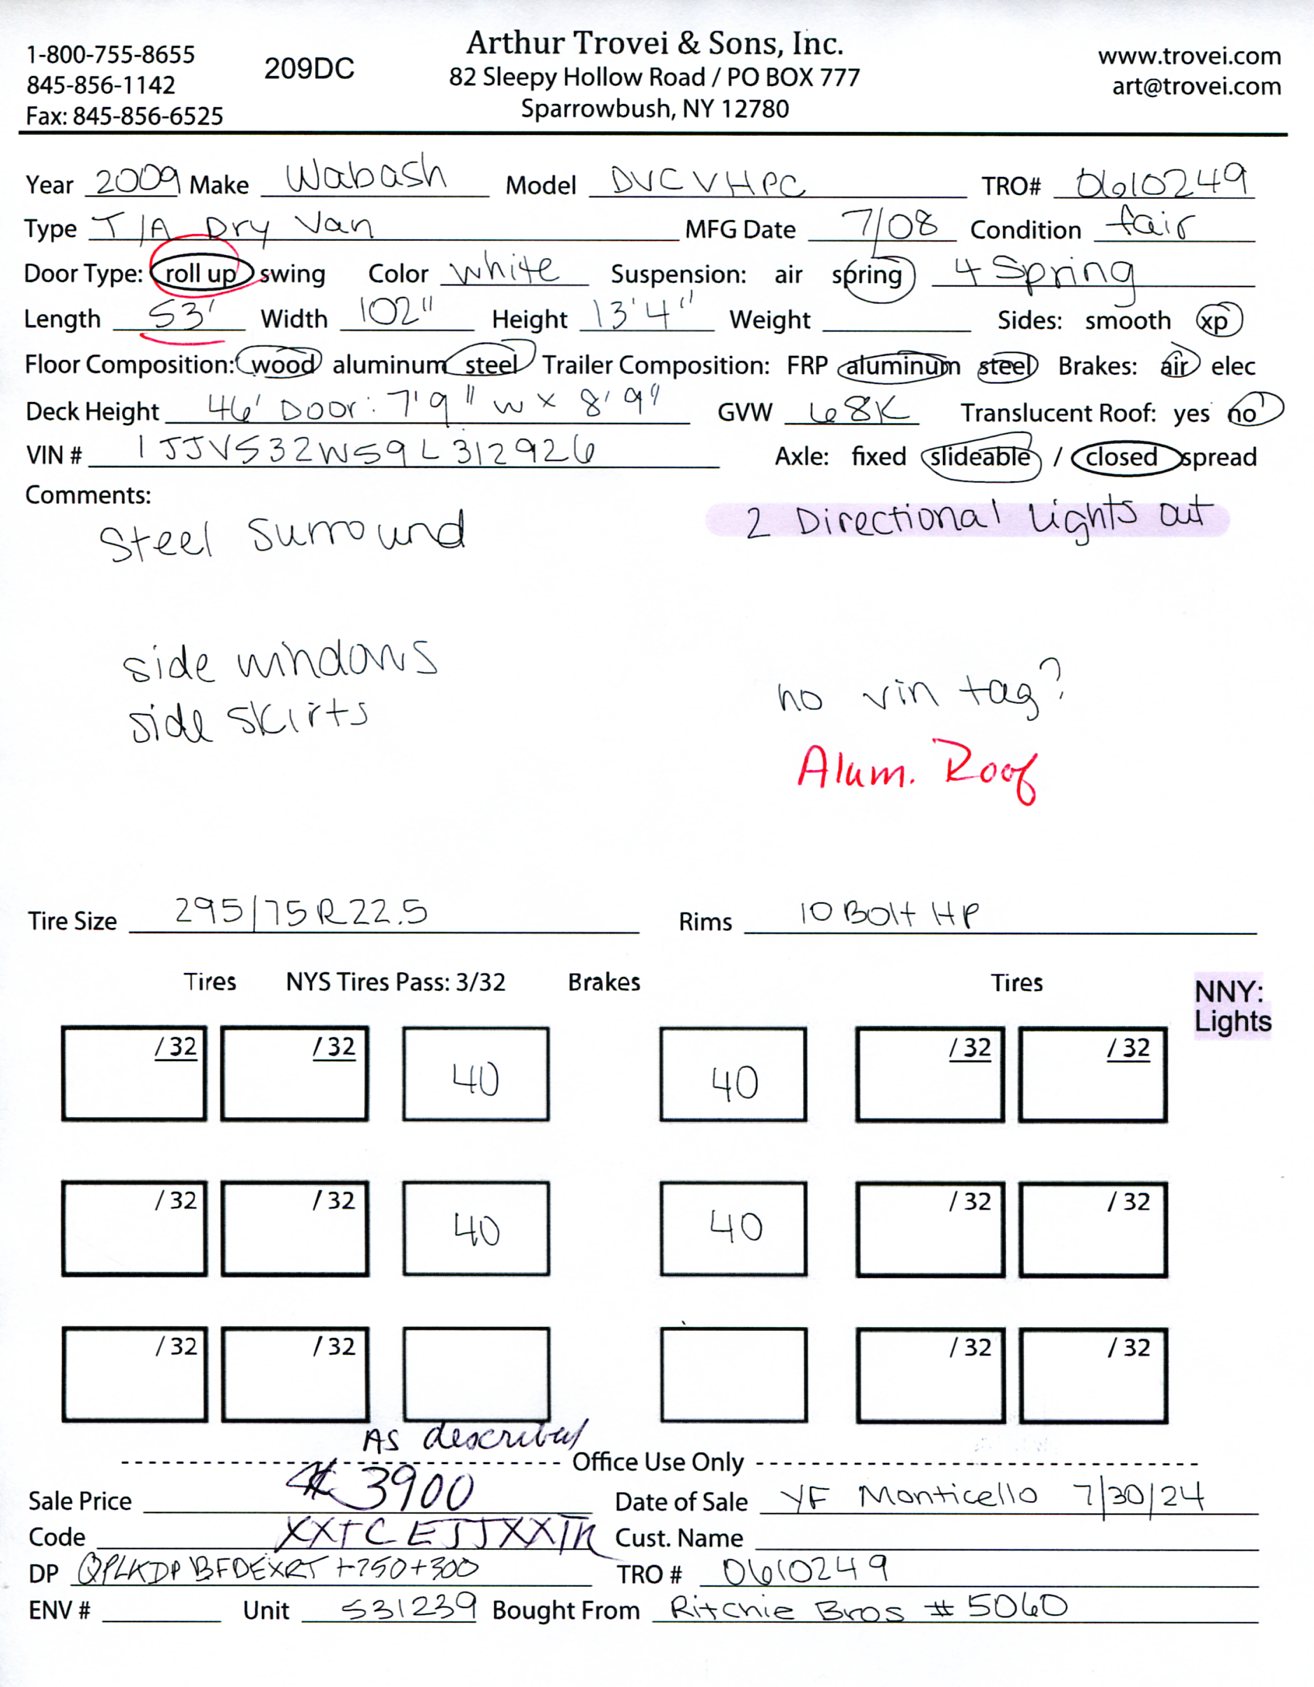 1-800-755-8655
845-856-1142
Fax: 845-856-6525
209DC
Arthur Trovei & Sons, Inc.
82 Sleepy Hollow Road / PO BOX 777
Sparrowbush, NY 12780
www.trovei.com
art@trovei.com
Year 2009 Make Wabash Model DVCVHPC TRO# 0610249
Type T/A Dry Van MFG Date 7/08 Condition fair
Door Type: roll up swing Color white Suspension: air spring 4 Spring
Length 53' Width 102" Height 13'4" Weight Sides: smooth xp
Floor Composition: wood aluminum steel Trailer Composition: FRP aluminum steel Brakes: air elec
Deck Height 46' Door: 7'9" w x 8'9" GVW 68K Translucent Roof: yes no
VIN # 1JJV532W59L312926 Axle: fixed slideable / closed spread
Comments:
Steel Surround
2 Directional Lights out
side windows
side skirts
no vin tag?
Alum. Roof
Tire Size 295/75R22.5 Rims 10 Bolt HP
Tires NYS Tires Pass: 3/32 Brakes Tires
NNY:
Lights
/ 32 / 32 40 40 / 32 / 32
/ 32 / 32 40 40 / 32 / 32
/ 32 / 32 / 32 / 32
As described
Office Use Only
Sale Price 3900 Date of Sale YF Monticello 7/30/24
Code Cust. Name
DP QPLKDPBFDEXRT +750+300 TRO # 0610249
ENV # Unit 531239 Bought From Ritchie Bros # 5060